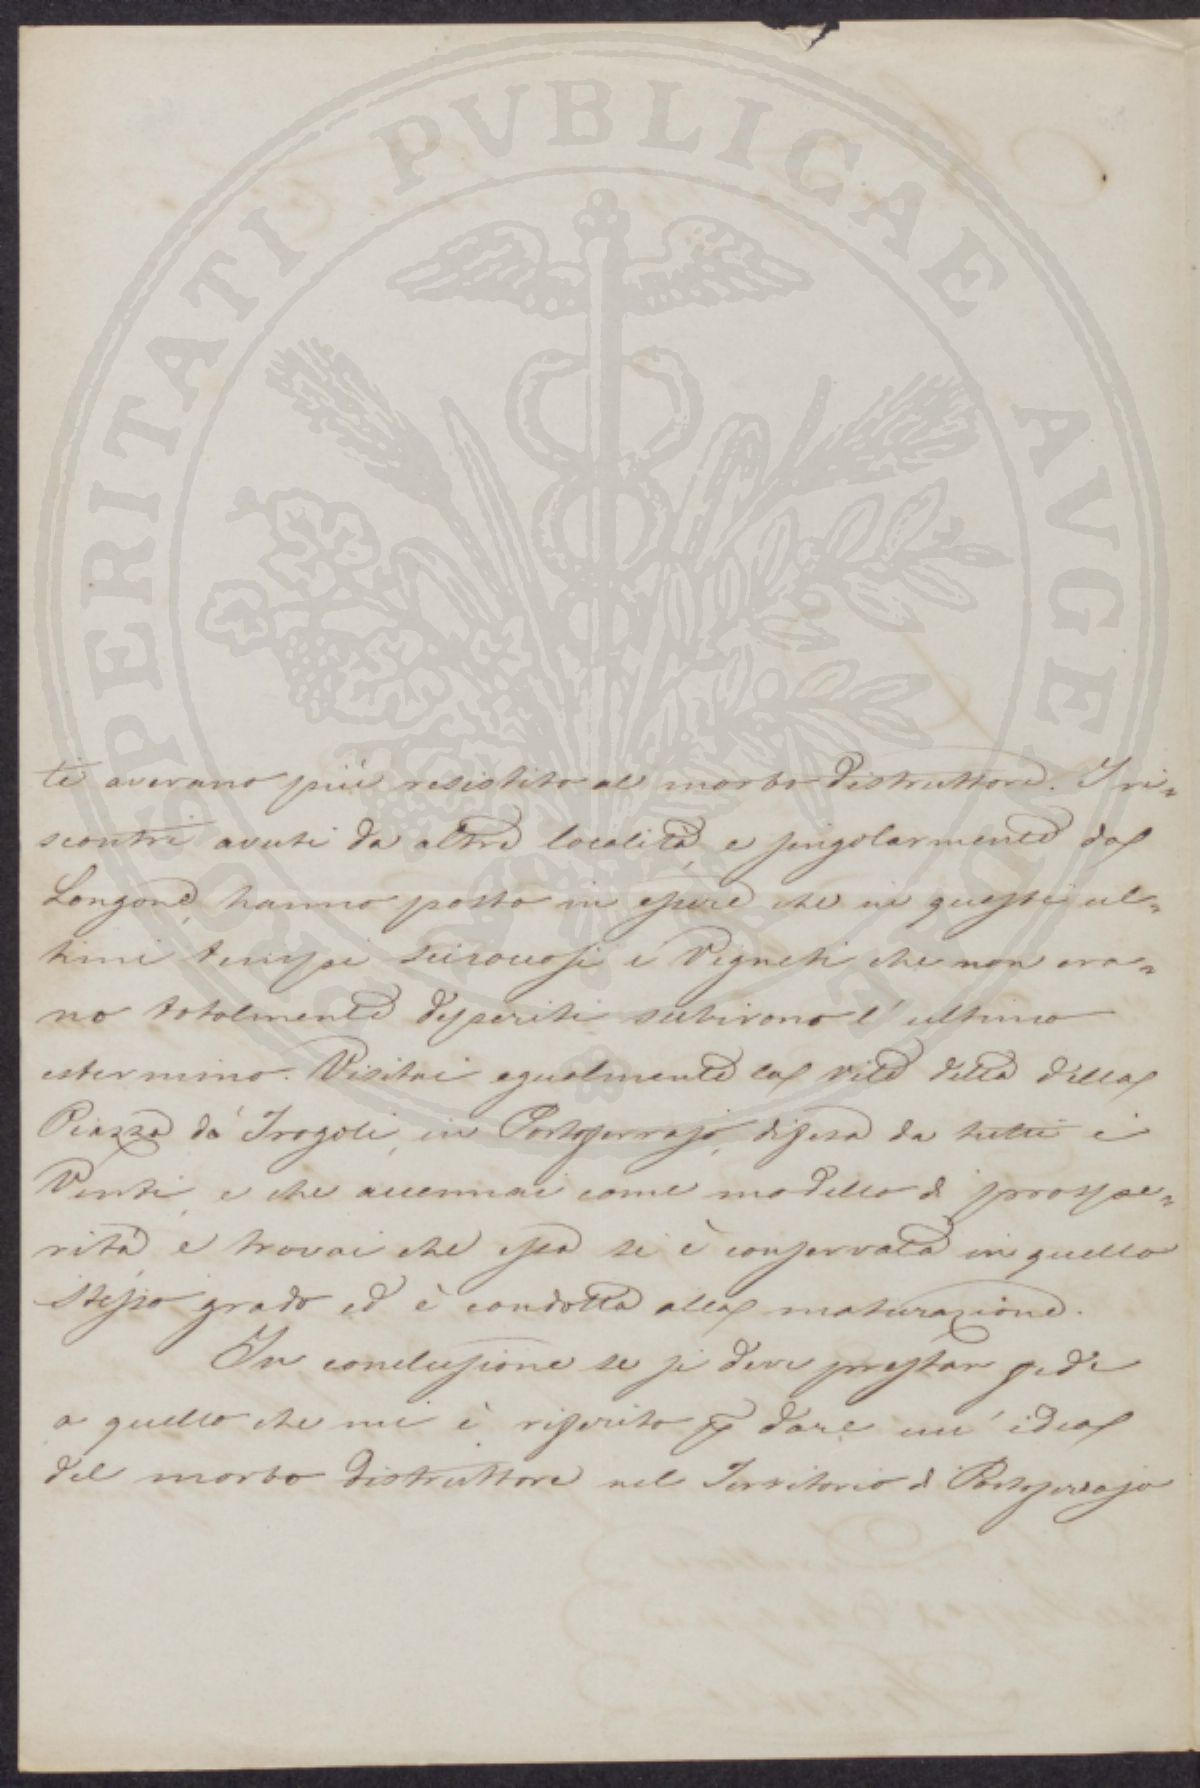 PROSPERITATI PUBLICAE AUGENDAE
te avevano più resistito al morbo distruttore. I ri=
scontri avuti da altre località, e singolarmente da
Longone, hanno posto in essere che in questi ul=
timi tempi scirocosi i Vigneti che non era=
no totalmente disperiti subirono l'ultimo
esterminio. Visitai egualmente la vite detta della
Piazza dà Trogoli, in Portoferrajo, difesa da tutti i
Venti, e che accennai come modello di prospe=
rità, e trovai che essa si è conservata in quello
stesso grado ed è condotta alla maturazione.
In conclusione se si deve prestar fede
a quello che mi è riferito p dare un' idea
del morbo distruttore nel Territorio di Portoferrajo